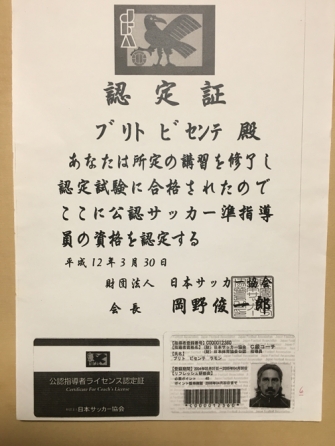 JFA
認定証
ブリト ビセンテ 殿
あなたは所定の講習を修了し
認定試験に合格されたので
ここに公認サッカー準指導
員の資格を認定する
平成12年3月30日
財団法人 日本サッカー協会
会長 岡野俊一郎
公認指導者ライセンス認定証
Certificate For Coach's License
日本サッカー協会
ブリト ビセンテ ラモン